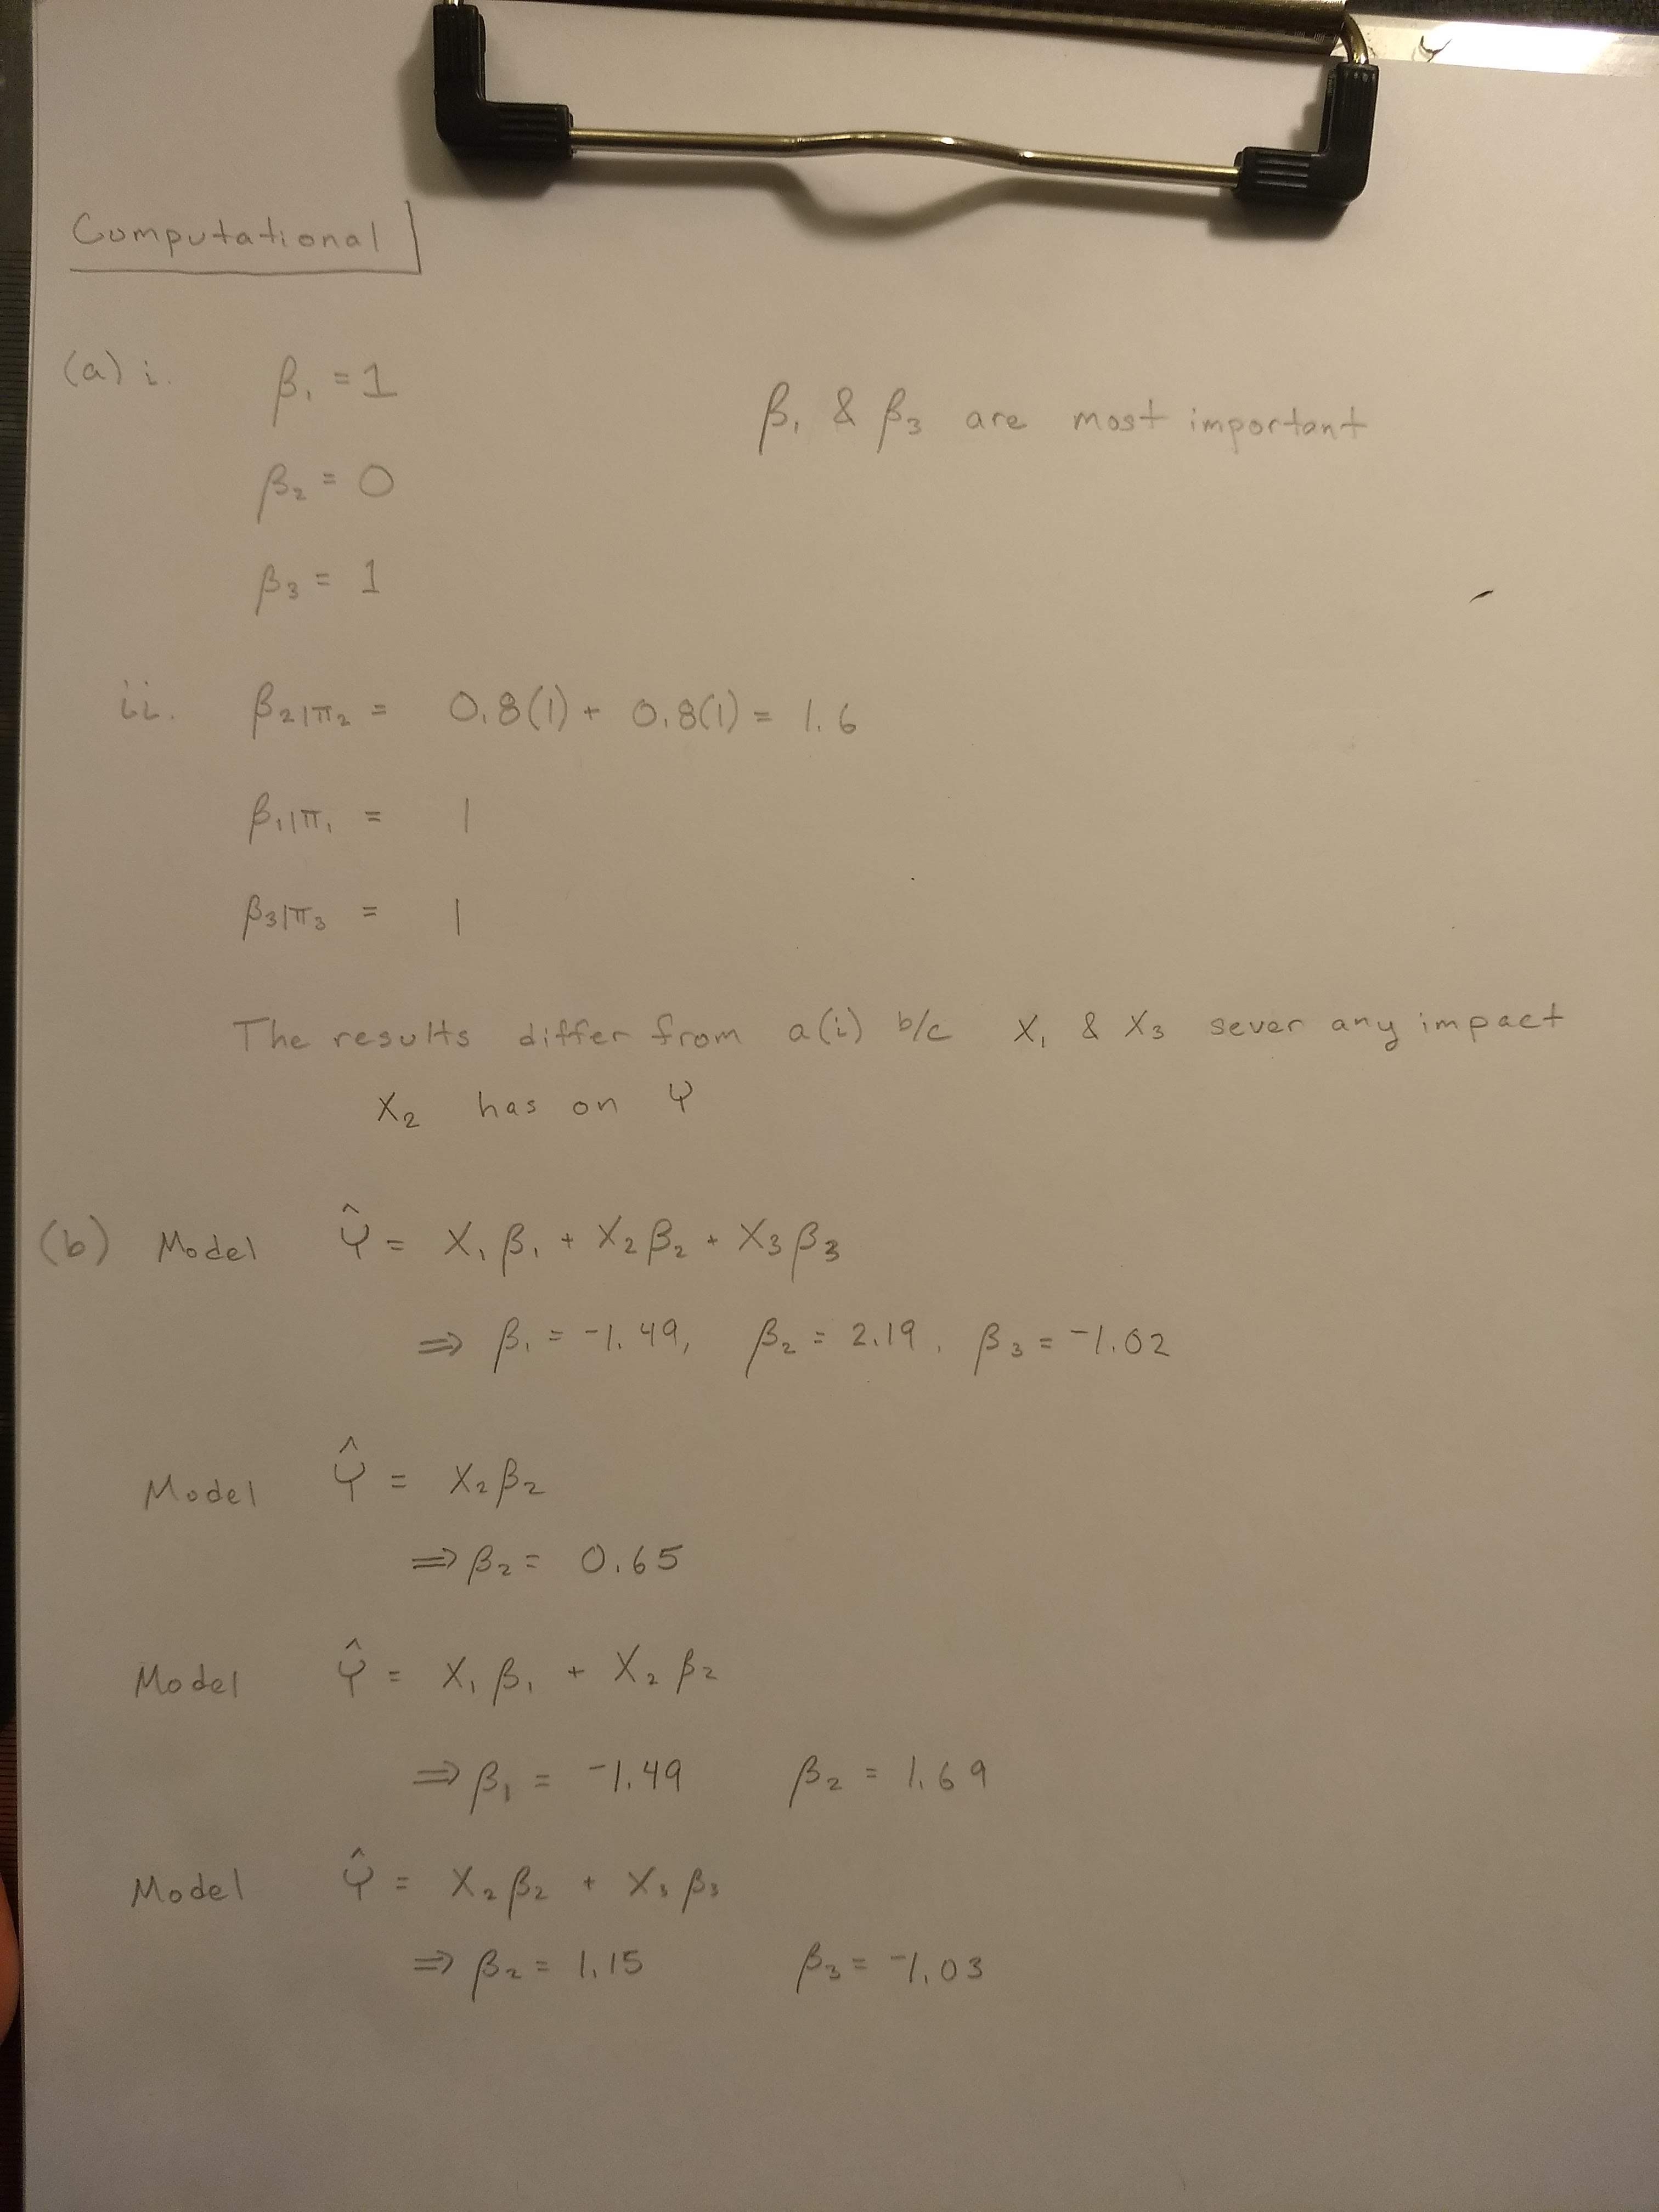 Computational
(a) i. β₁ = 1
β₁ & β₃ are most important
β₂ = 0
β₃ = 1
ii. β₂|π₂ = 0.8(1) + 0.8(1) = 1.6
β₁|π₁ = 1
β₃|π₃ = 1
The results differ from a(i) b/c X₁ & X₃ sever any impact
X₂ has on Y
(b) Model Ŷ = X₁β₁ + X₂β₂ + X₃β₃
⇒ β₁ = -1.49, β₂ = 2.19, β₃ = -1.02
Model Ŷ = X₂β₂
⇒ β₂ = 0.65
Model Ŷ = X₁β₁ + X₂β₂
⇒ β₁ = -1.49 β₂ = 1.69
Model Ŷ = X₂β₂ + X₃β₃
⇒ β₂ = 1.15 β₃ = -1.03